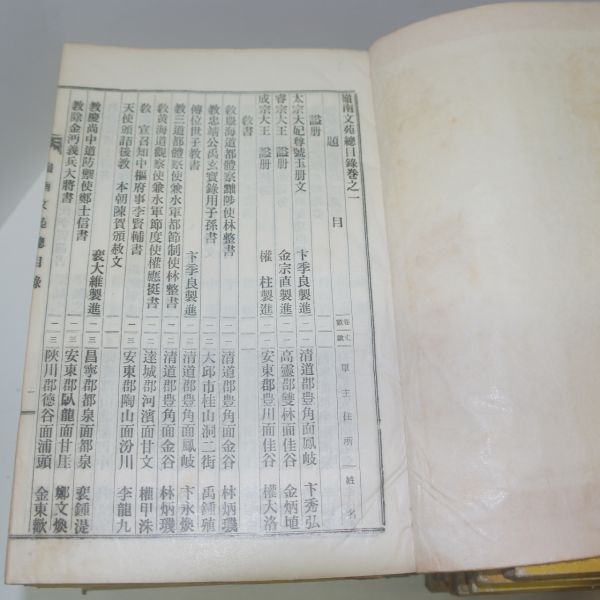 嶺南文苑總目錄卷之一
題 目 卷次 歎數 單主住所 姓名
諡冊
太宗大妃尊號玉册文 卞季良製進 一 一 清道郡豊角面鳳岐 卞秀弘
睿宗大王 諡册 金宗直製進 一 二 高靈郡雙林面佳谷 金炳埴
成宗大王 諡册 權 柱製進 一 二 安東郡豊川面佳谷 權大洛
敎書
敎慶海道都體察黜陟使林整書 一 二 清道郡豊角面金谷 林炳璣
敎忠靖公禹玄寶錄用子孫書 一 二 大邱市桂山洞二街 禹鍾殖
傳位世子教書 卞季良製進 一 二 清道郡豊角面鳳岐 卞永煥
敎三道都體察使兼水軍都節制使林整書 一 二 清道郡豊角面金谷 林炳璣
敎黃海道觀察使兼水軍節度使權應挺書 一 二 達城郡河濱面甘文 權甲洙
敎 宣召知中樞府事李賢輔書 一 三 安東郡陶山面汾川 李龍九
天使頒詔後敎 本朝陳賀頒赦文
裵大維製進 一 三 昌寧郡都泉面都泉 裵鍾湜
敎慶尚中道防禦使鄭士信書 一 三 安東郡臥龍面甘厓 鄭文煥
敎除金沔義兵大將書 一 三 陜川郡德谷面浦頭 金東歡
嶺南文苑總目錄 一